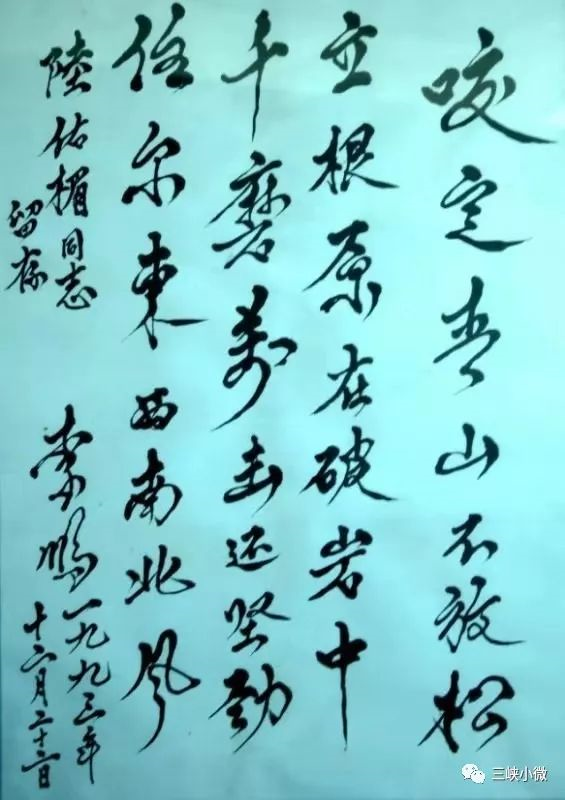 咬定青山不放松
立根原在破岩中
千磨万击还坚劲
任尔东西南北风
陸佑楣同志
留存
李鹏
一九九三年
十二月二十六日
三峡小微